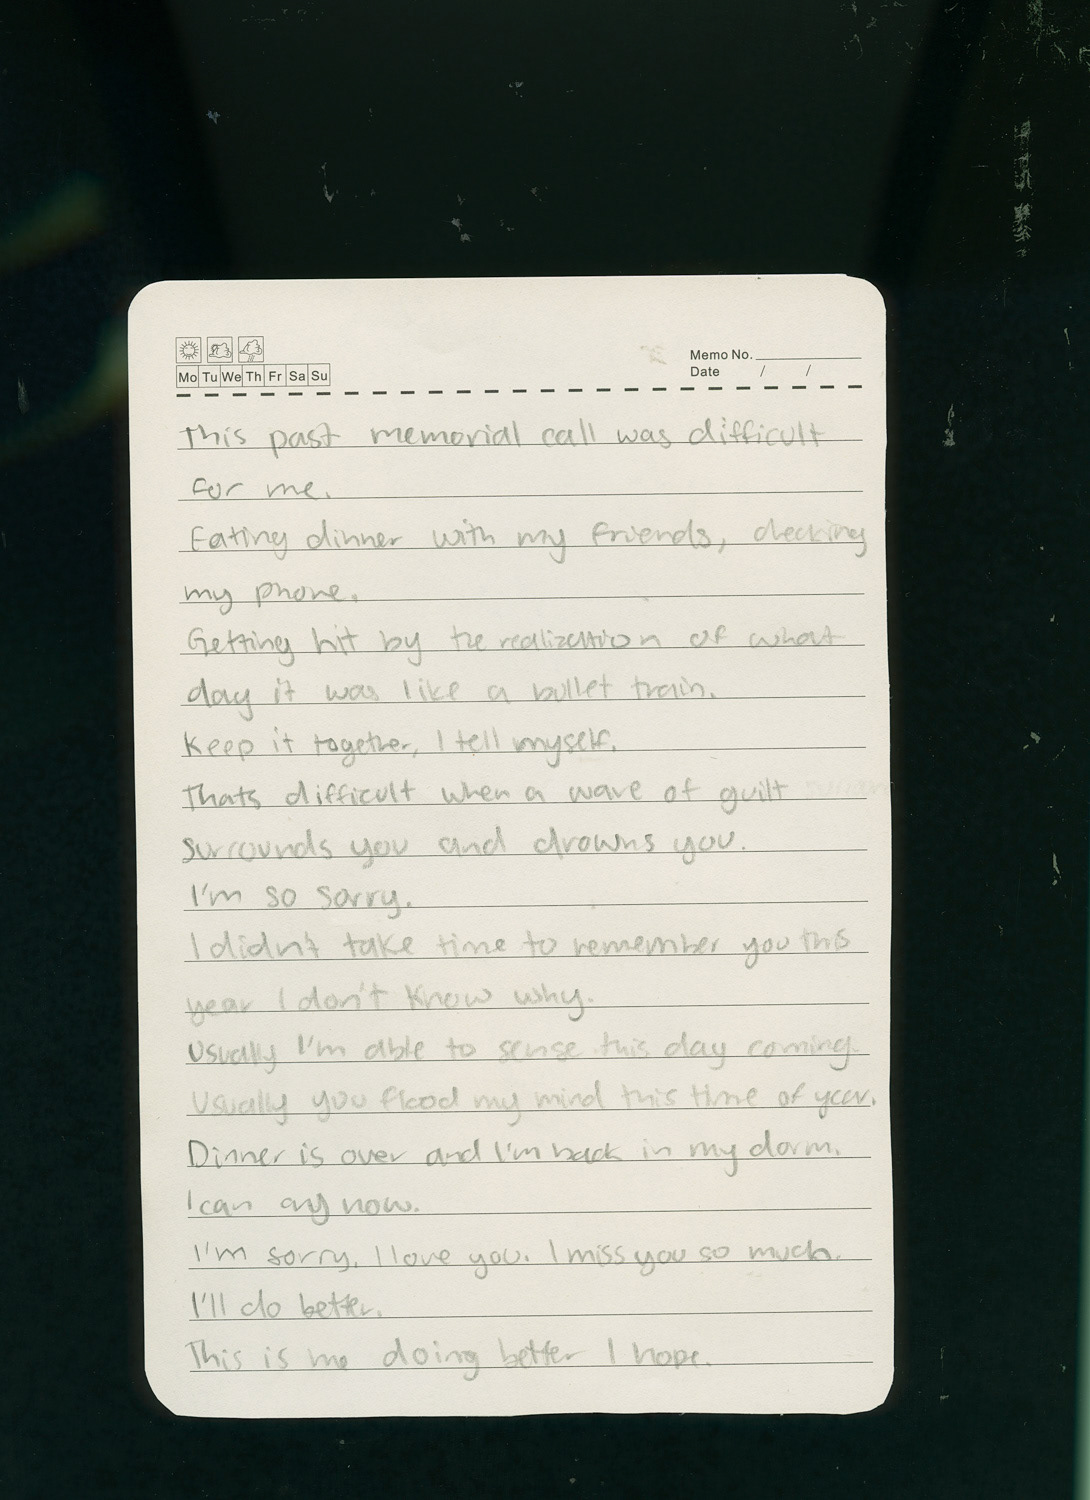 Memo No.
Mo Tu We Th Fr Sa Su
Date / /
This past memorial call was difficult
for me.
Eating dinner with my friends, checking
my phone.
Getting hit by the realization of what
day it was like a bullet train.
Keep it together, I tell myself.
Thats difficult when a wave of guilt
surrounds you and drowns you.
I'm so sorry.
I didn't take time to remember you this
year I don't know why.
Usually I'm able to sense this day coming.
Usually you flood my mind this time of year.
Dinner is over and I'm back in my dorm.
I can cry now.
I'm sorry. I love you. I miss you so much.
I'll do better.
This is me doing better I hope.